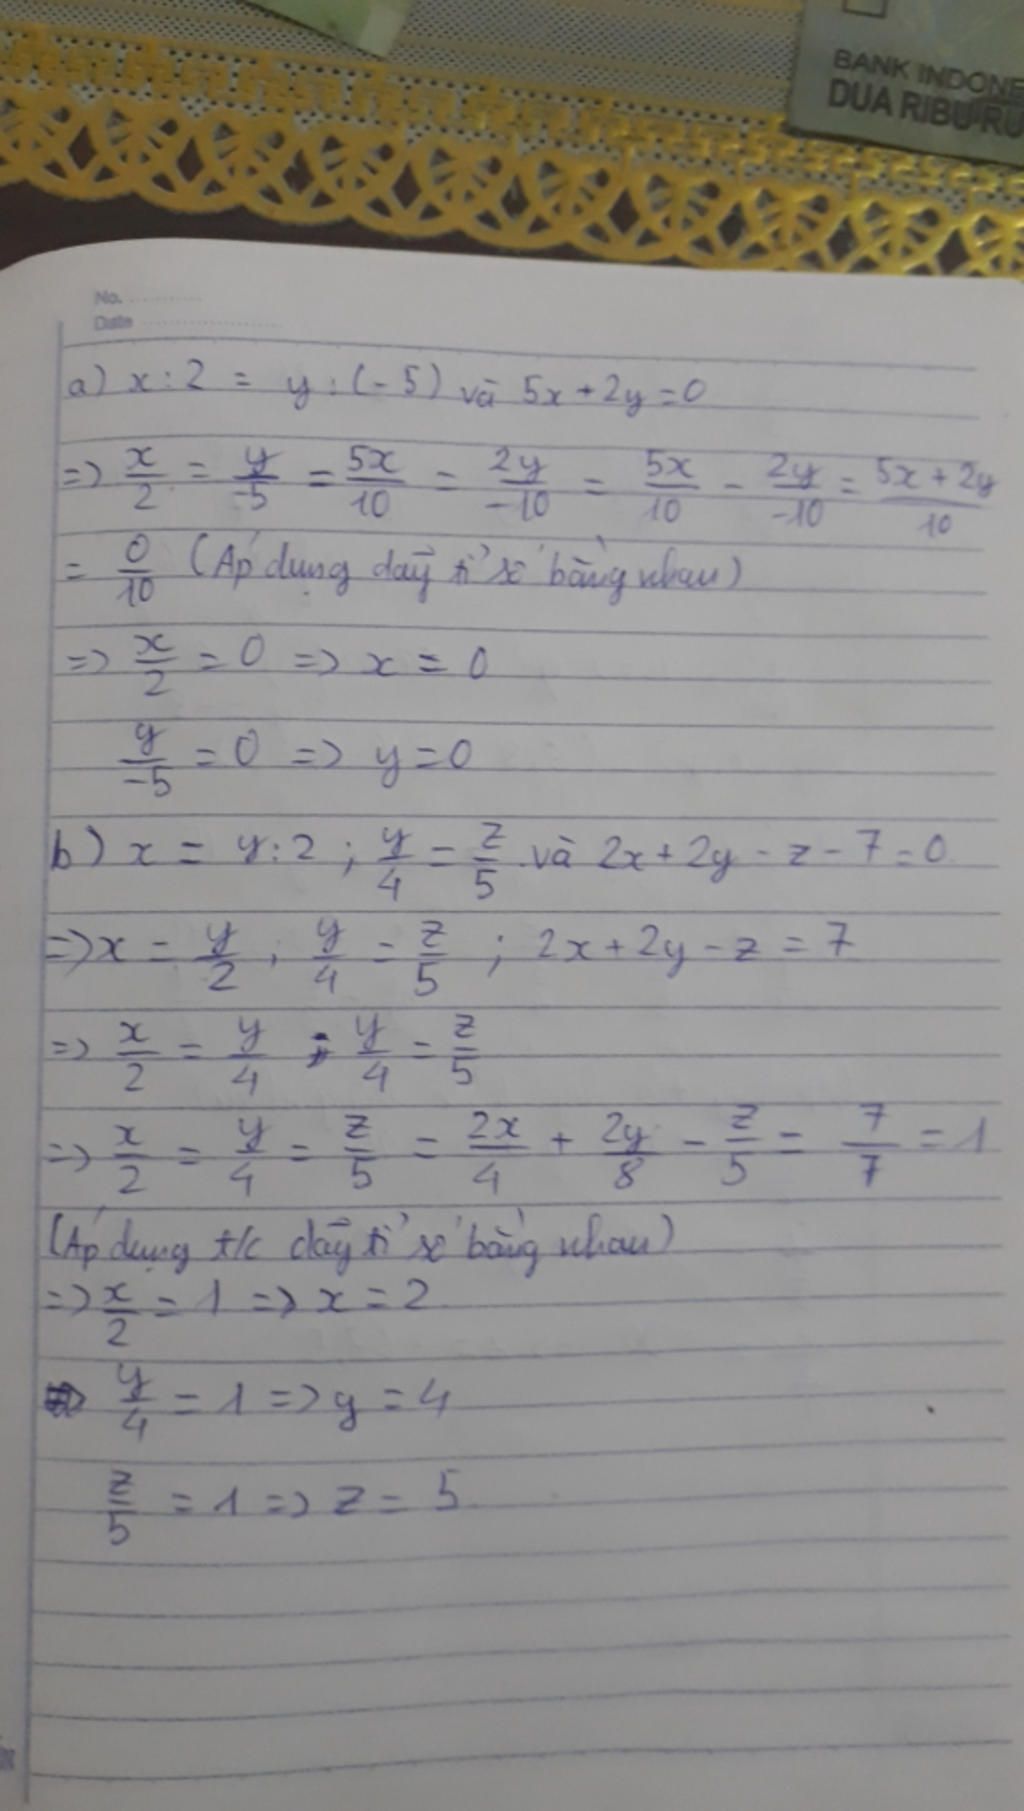 BANK INDONE
DUA RIBU RU
No.
Date
a) x : 2 = y : (-5) và 5x + 2y = 0
=> x/2 = y/-5 = 5x/10 = 2y/-10 = 5x/10 - 2y/-10 = 5x + 2y/10
= 0/10 (Áp dụng dãy tỉ số bằng nhau)
=> x/2 = 0 => x = 0
y/-5 = 0 => y = 0
b) x = y : 2 ; y/4 = z/5 và 2x + 2y - z - 7 = 0
=> x = y/2 ; y/4 = z/5 ; 2x + 2y - z = 7
=> x/2 = y/4 ; y/4 = z/5
=> x/2 = y/4 = z/5 = 2x/4 + 2y/8 - z/5 = 7/7 = 1
(Áp dụng t/c dãy tỉ số bằng nhau)
=> x/2 = 1 => x = 2
=> y/4 = 1 => y = 4
z/5 = 1 => z = 5